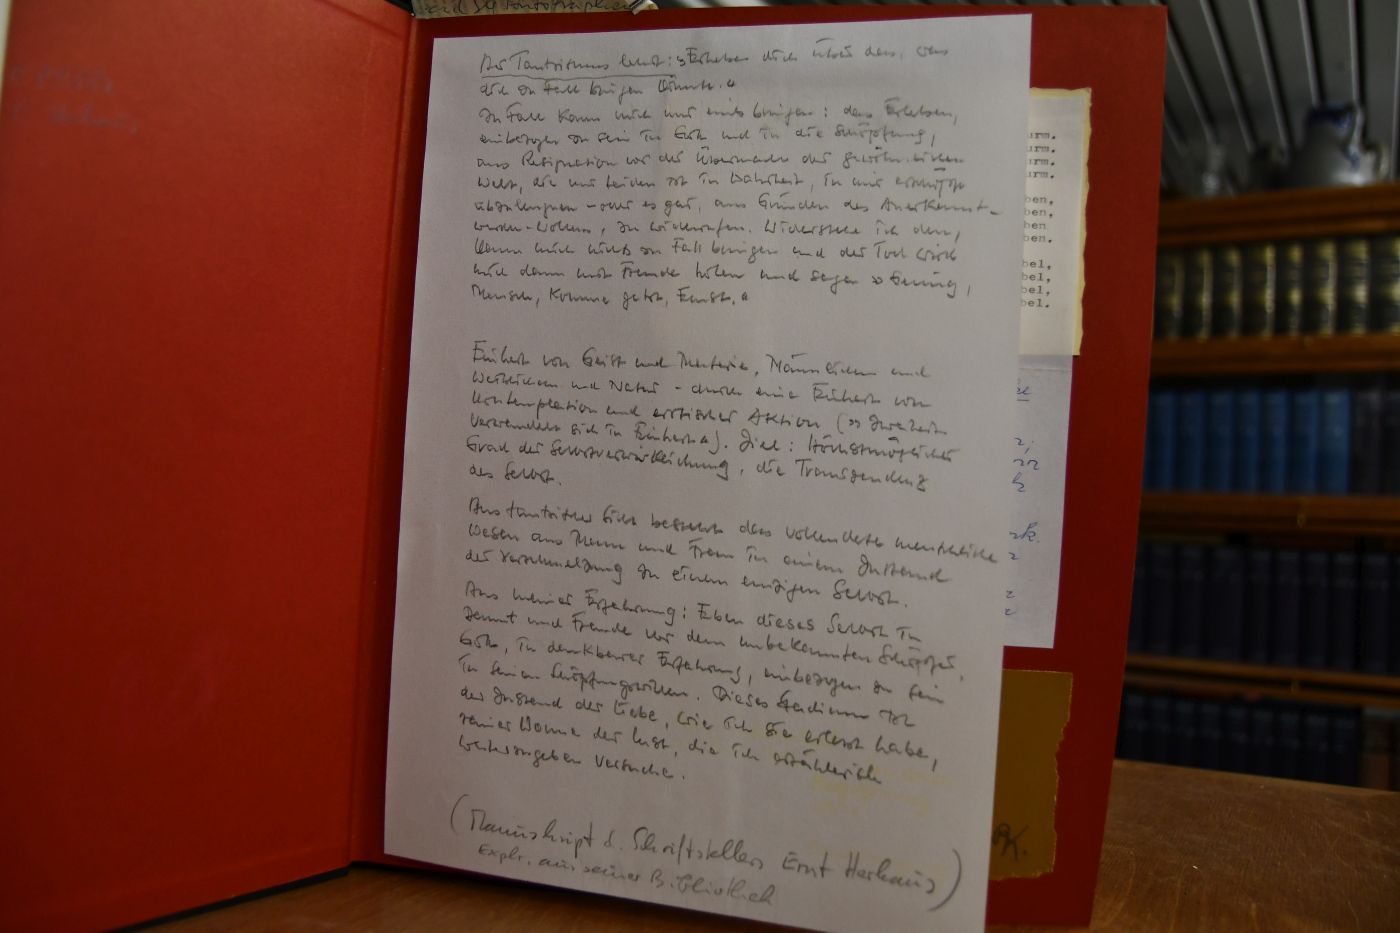 Der Tantrismus lehrt: »Erhebe dich über das, was
dich zu Fall bringen könnte.«
Zu Fall kann mich nur eins bringen: das Erleben,
einbezogen zu sein in Gott und in die Schöpfung,
aus Resignation vor der Übermacht der gewöhnlichen
Welt, die nur Leiden ist in Wahrheit, in mir
abzuleugnen - oder es gar, aus Gründen des Anerkannt-
werden-Wollens, zu widerrufen. Widerstehe ich dem,
kann mich nichts zu Fall bringen und der Tod wird
mich dann mit Freude holen und sagen »Genug,
Mensch, komme jetzt, Ernst.«
Einheit von Geist und Materie, Männlichem und
Weiblichem und Natur - durch eine Einheit von
Kontemplation und erotischer Aktion (»Zweiheit
verwandelt sich in Einheit«). Ziel: Höchstmöglicher
Grad der Selbstverwirklichung, die Transzendenz
des Selbst.
Aus tantrischer Sicht besteht das vollendete menschliche
Wesen aus Mann und Frau in einem Zustand
der Verschmelzung zu einem einzigen Selbst.
Aus meiner Erfahrung: Eben dieses Selbst in
Demut und Freude vor dem unbekannten Schöpfer,
Gott, in dankbarer Erfahrung, einbezogen zu sein
in seinen Schöpfungswillen. Dieses Stadium ist
der Zustand der Liebe, wie ich sie erlebt habe,
reiner Wonne der Lust, die ich erzählerisch
weiterzugeben versuche.
(Manuskript d. Schriftstellers Ernst Herhaus)
Expl. aus seiner Bibliothek
urm.
urm.
urm.
urm.
ben,
ben,
ben
ben.
bel,
bel,
bel,
bel.